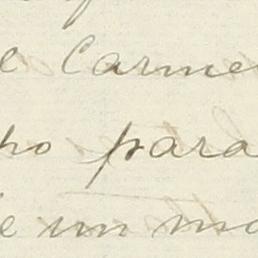 e Carme
ho para
e un mo